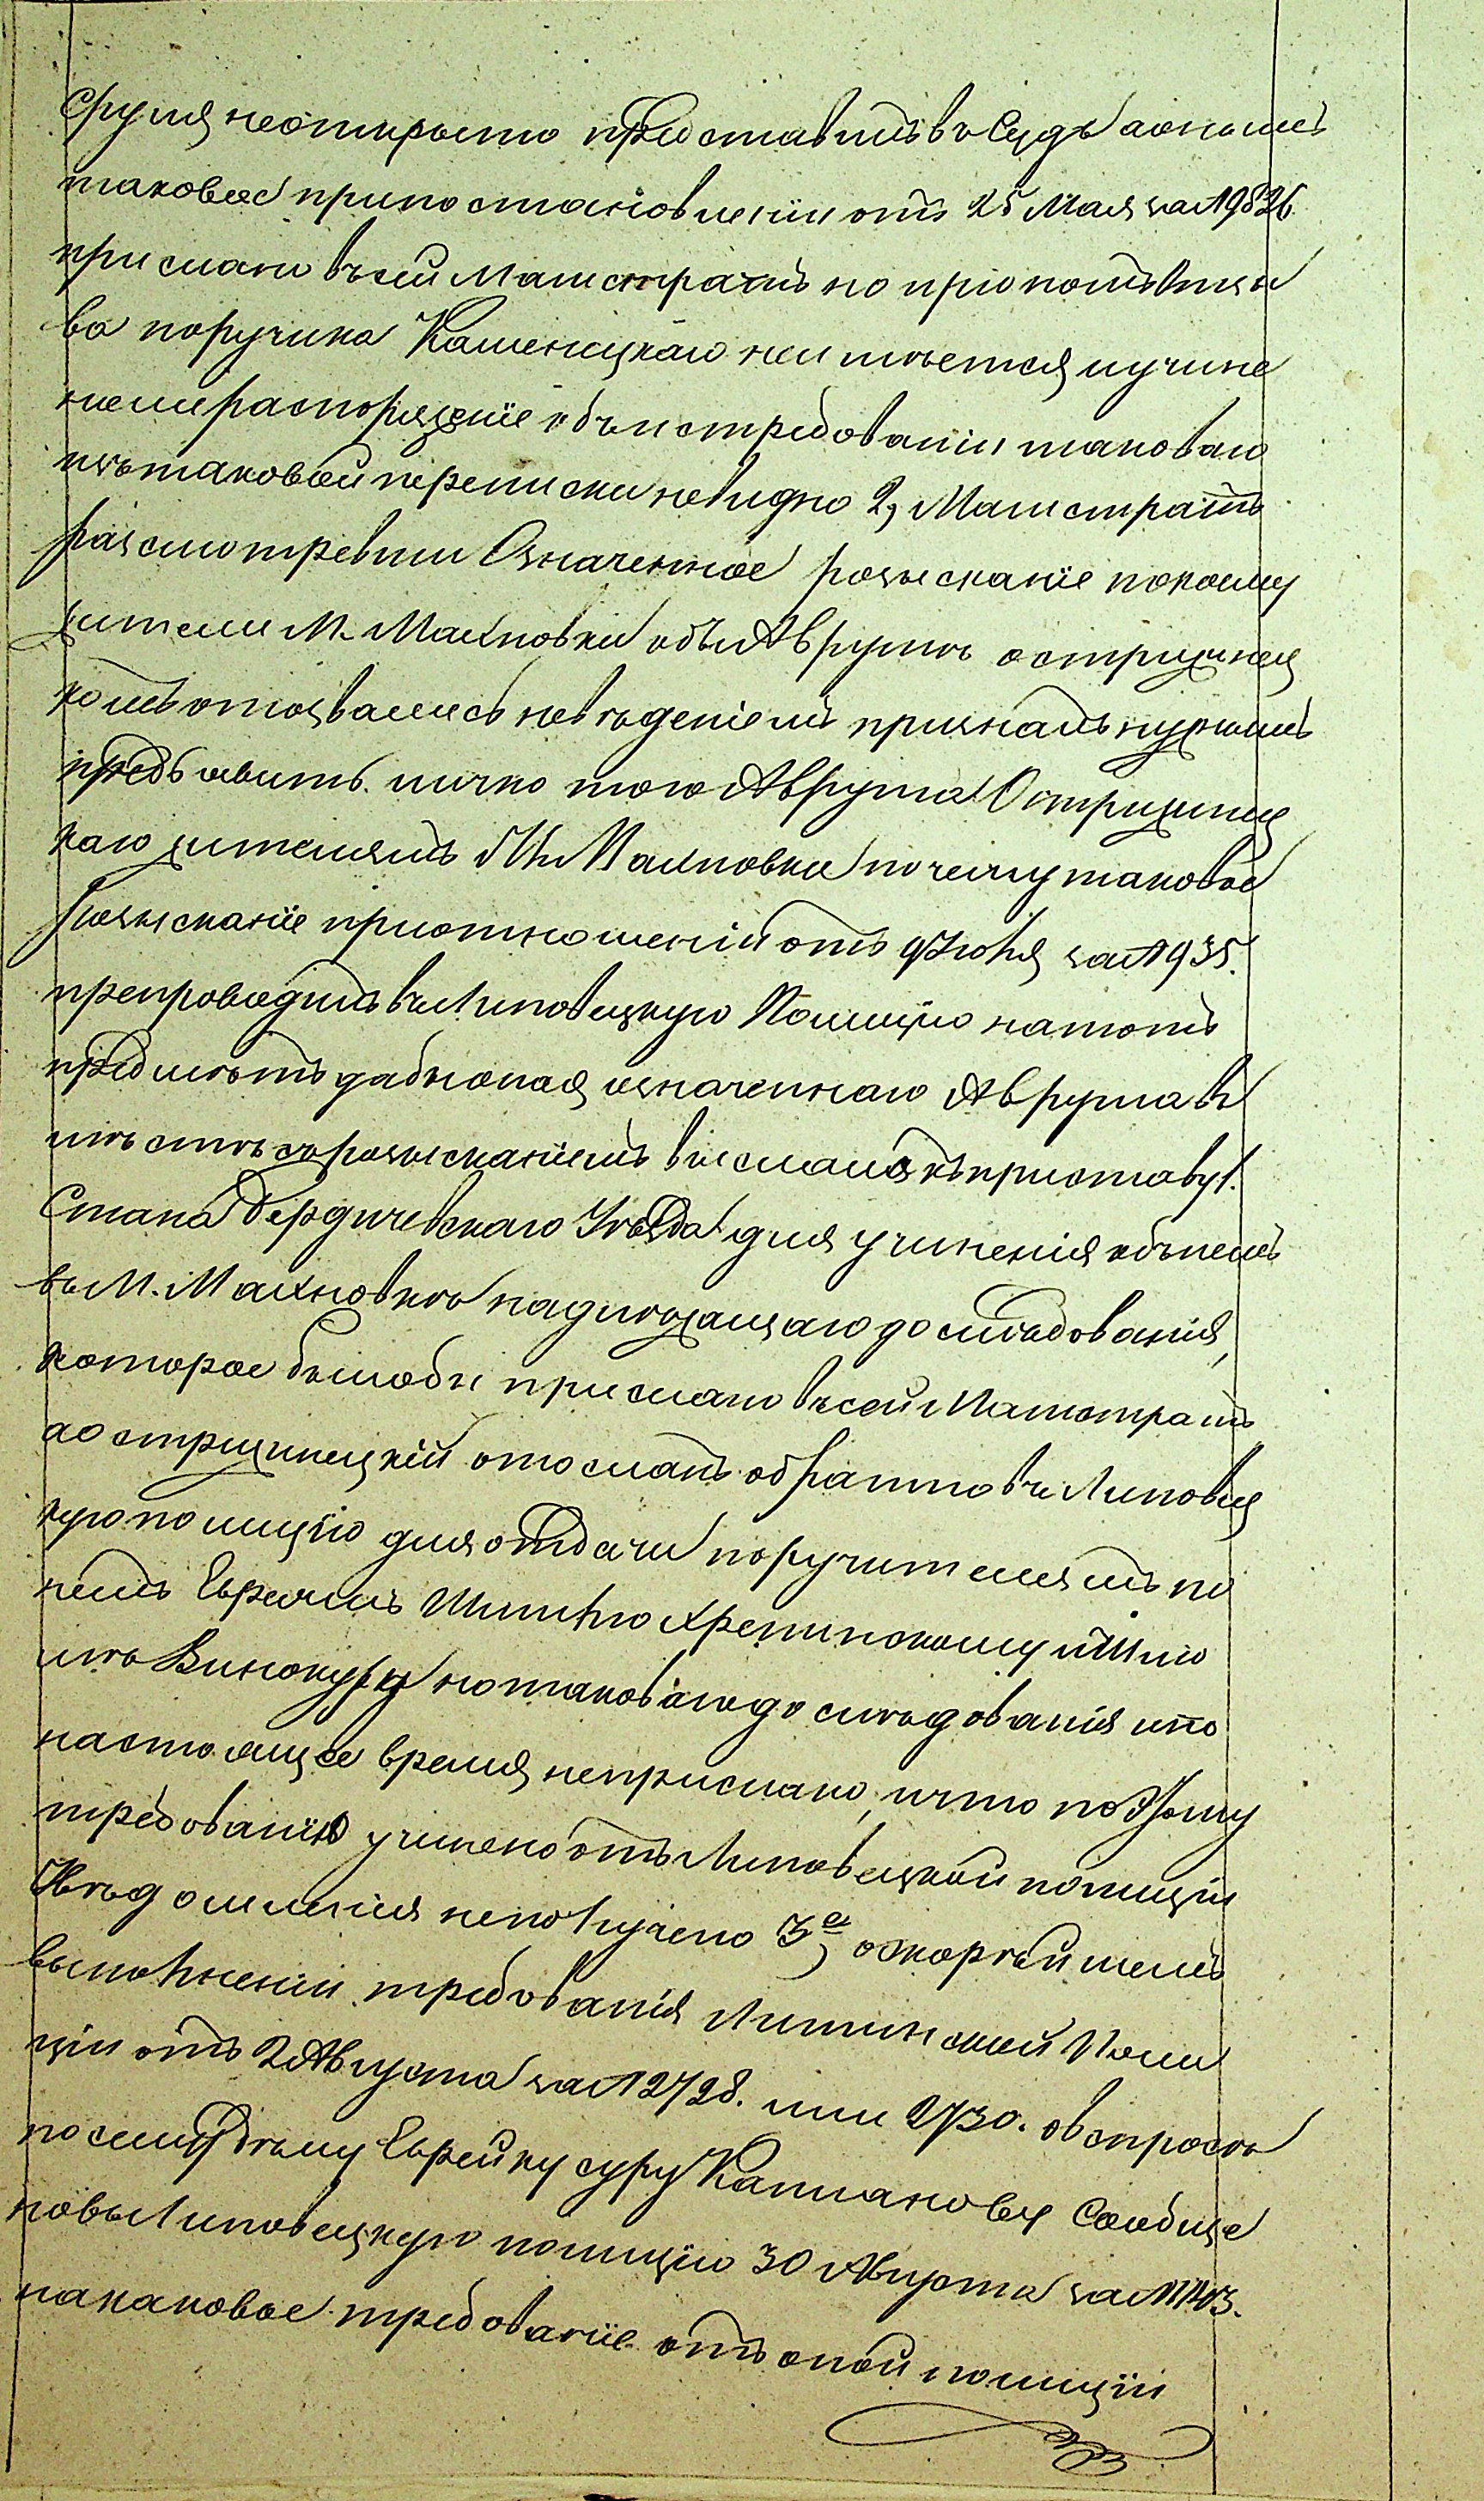 Сруля неоткрыто представить въ Судъ а оныхъ
таковое при постановленіи отъ 25 Мая за №9826
прислано въ сей Магистратъ но при копіи
ва поручика Каменецкаго неимѣется и учине
но ли распоряженіе объ истребованіи таковаго
изъ таковой переписки невидно 2, Магистратъ
разсмотревши Означенное розысканіе по коему
жители М. Махновки объ Аврумѣ Острижинец
комъ отозвались невѣденіемъ призналъ нужнымъ
предъявить лично того Аврума Острижинец
каго жителямъ М. Махновки почему таковое
розысканіе при отношеніи отъ 9 Июня за №935.
препроводитъ въ Липовецкую Полицію натотъ
предметъ дабы оная означеннаго Аврума въ
мѣстѣ съ розысканіемъ выслала къ приставу 1.
Стана Бердичевскаго Уѣзда для учиненія объ немъ
въ М. Махновкѣ надлежащаго дослѣдованія,
которое былобы прислано въ сей Магистратъ,
а Острижинецкій отосланъ обратно въ Липовец
кую полицію для отдачи поручителямъ по
немъ Евреямъ Шліомѣ Хрепинскому и Шліо
мѣ Винокуру но таковаго дослѣдованія и по
настоящее время неприслано, и что по этому
требованію учинено отъ Липовецкой полиціи
Увѣдомленія неполучено 3е, о скорѣйшемъ
выполненіи требованія Литинской Поли
ціи отъ 2 Августа за №2728. или 2730. о вспросѣ
по семуже дѣлу Еврейку суру Капланову Сообще
но въ Липовецкую полицію 30 Августа за №1403.
на каковое требованіе отъ оной полиціи